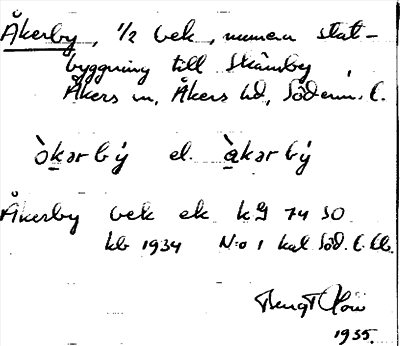 Åkerby, 1/2 bek, numera stat-
byggning till Skämby,
Åkers sn, Åkers hd, Söderm. l.
òk̲ərbý el. àk̲ərbý
Åkerby bek ek kg 74 SO
kb 1934 N:o 1 kal Söd. l. bl.
Bengt
1935.